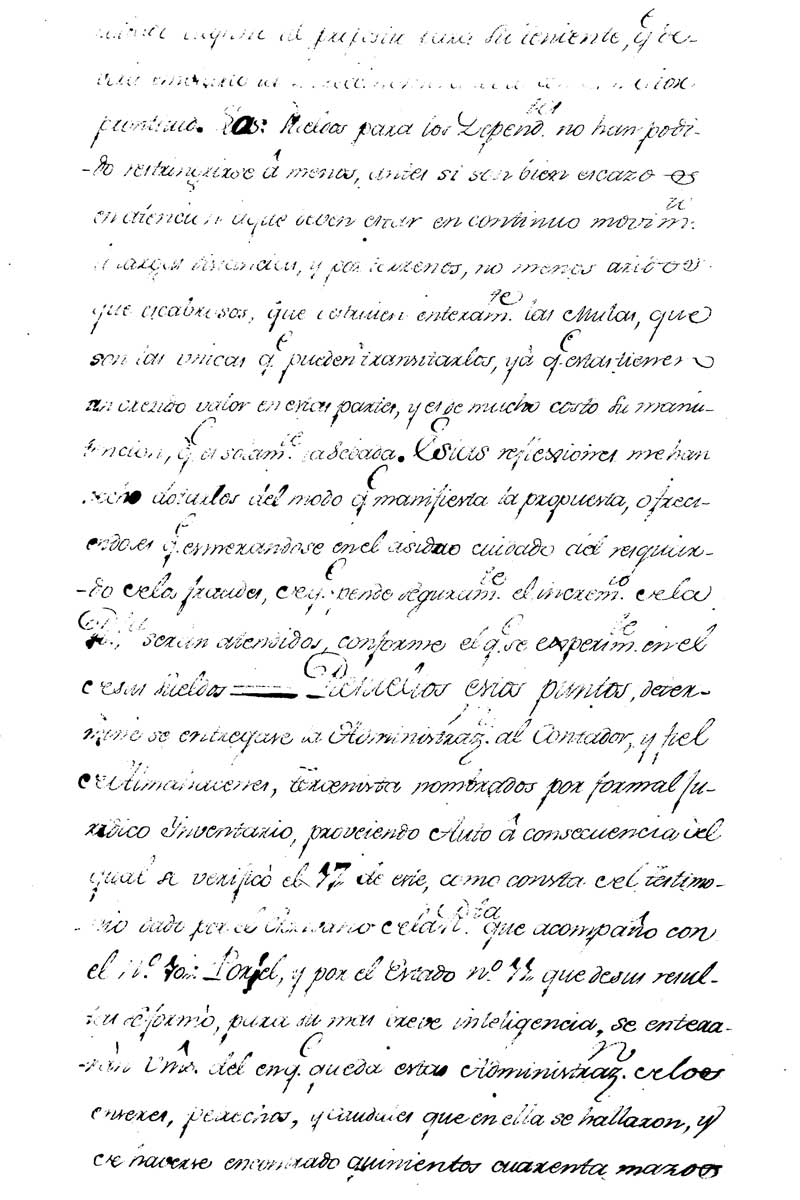 su teniente, q̃ de-
puntual. Los Sueldos para los Depend.tes no han podi-
-do restringirse â menos, antes si son bien escazos
en atencion âque deven estar en continuo movim.to
â largas distancias, y por terrenos, no menos aridos
que escabrosos, que destruien enteram.te las Mulas, que
son las unicas q̃ pueden transitarlos, yâ q̃ estas tienen
un exendo valor en estas partes, y es de mucho costo su manu-
tencion, q̃ es solam.te la Sebada. Estas reflexsiones me han
hecho dotarlos del modo q̃ manifiesta la propuesta, ofreci-
endoles q̃ esmerandose en el asiduo cuidado del resguar-
-do de los fraudes, de q̃ pende seguram.te el increm.to de la
R.ta, serân atendidos, conforme el q̃ se experim.te en el
de sus sueldos == Resueltos estos puntos, deter-
miné se entregase la Administraz.n al Contador, y fiel
de Almahacenes, tercenista nombrados por formal Ju-
ridico Inventario, proveiendo Auto â consecuencia del
qual se verificò el 17 de este, como consta del testimo-
-nio dado por el Escrivano de la R.l Rta que acompaño con
el N.º 10: Por el, y por el Estado n.º 11 que de sus resul-
tas se formò, para su mas breve inteligencia, se entera-
-ràn Vms. del en q̃ queda esta Administraz.n de los
enseres, peltrechos, y caudales que en ella se hallaron, y
de haverse encontrado quinientos cuarenta mazos